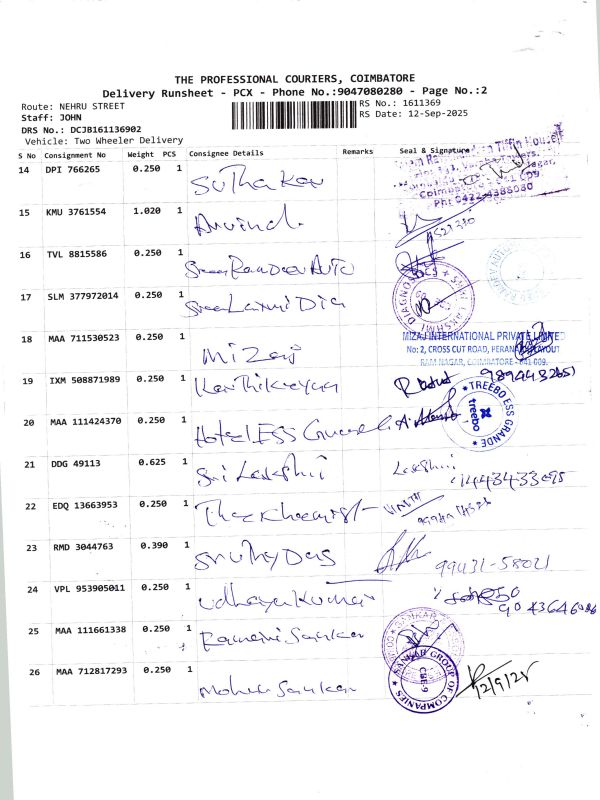 THE PROFESSIONAL COURIERS, COIMBATORE
Delivery Runsheet - PCX - Phone No.:9047080280 - Page No.:2
Route: NEHRU STREET
RS No.: 1611369
Staff: JOHN
RS Date: 12-Sep-2025
DRS No.: DCJB161136902
Vehicle: Two Wheeler Delivery
S No Consignment No Weight PCS Consignee Details Remarks Seal & Signature
14 DPI 766265 0.250 1 Suthakar
Coimbatore
Ph: 0422-4388080
15 KMU 3761554 1.020 1 Arvind
16 TVL 8815586 0.250 1 Sree Ramdev Auto
17 SLM 377972014 0.250 1 Sree Laxmi Dia
DIAGNOSTICS
18 MAA 711530523 0.250 1 Mizaj
MIZAJ INTERNATIONAL PRIVATE LIMITED
No: 2, CROSS CUT ROAD,
RAM NAGAR, COIMBATORE - 641 009.
19 IXM 508871989 0.250 1 Karthikeyan
20 MAA 111424370 0.250 1 Hotel ESS Grande
TREEBO ESS GRANDE
treebo
21 DDG 49113 0.625 1 Sri Lakshmi Lakshmi
22 EDQ 13663953 0.250 1
23 RMD 3044763 0.390 1 Sruthy Das 99431-58021
24 VPL 953905011 0.250 1 Udhayakumar
25 MAA 111661338 0.250 1 Ramani Sankar
26 MAA 712817293 0.250 1 Mohan Sankar
SANKAR GROUP OF COMPANIES
CBE-9
12/9/25